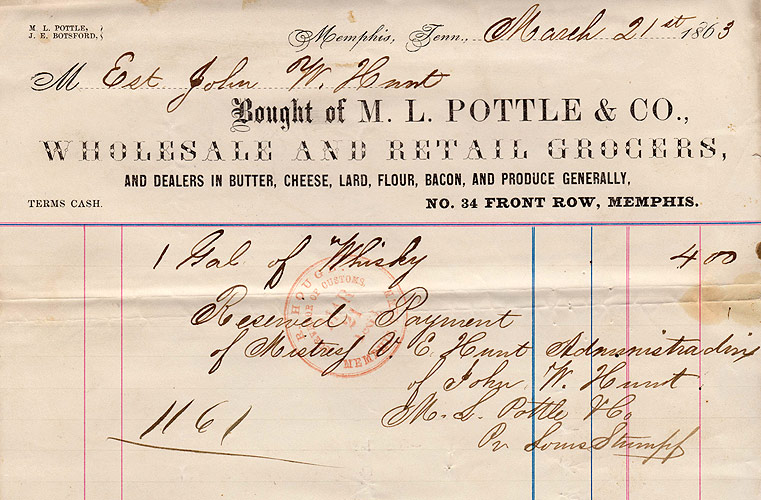 M. L. POTTLE,
J. E. BOTSFORD,
Memphis, Tenn., March 21st 1863
M Est John W. Hunt
Bought of M. L. POTTLE & CO.,
WHOLESALE AND RETAIL GROCERS,
AND DEALERS IN BUTTER, CHEESE, LARD, FLOUR, BACON, AND PRODUCE GENERALLY,
TERMS CASH. NO. 34 FRONT ROW, MEMPHIS.
1 Gal of Whisky 4 00
Reseved Payment
of Mistress V. E. Hunt Administradrix
of John W. Hunt.
M. L. Pottle & Co
Pr Louis Stumpf
1161
R HOUG
OF CUSTOMS.
MAR
21
MEMP